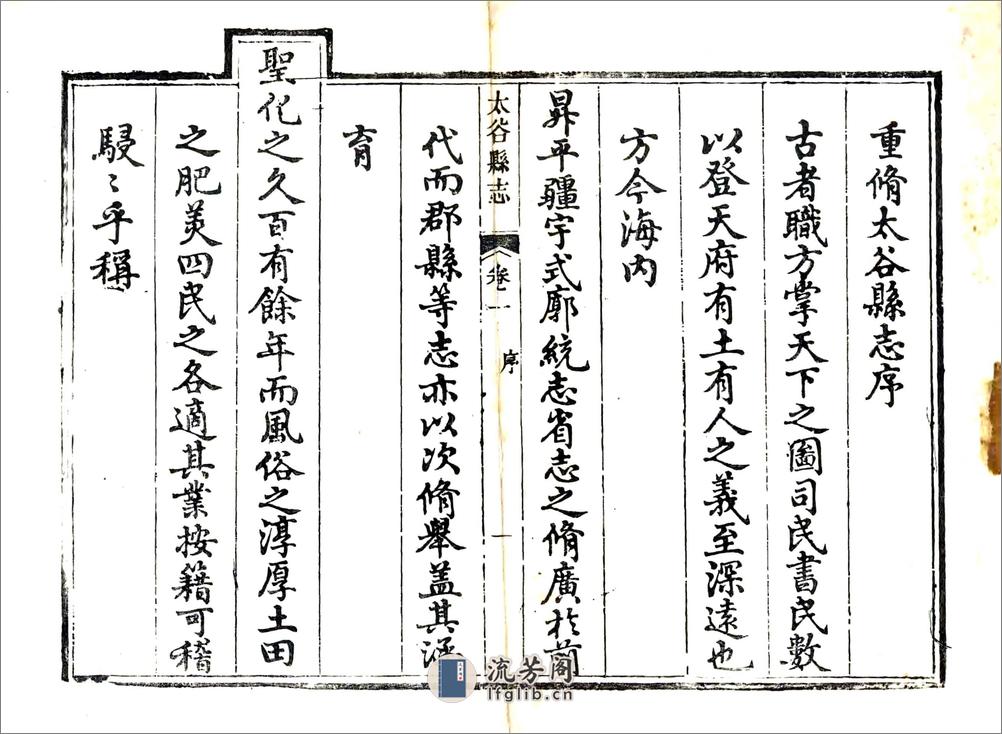 重脩太谷縣志序
古者職方掌天下之圖司民書民數
以登天府有土有人之義至深遠也
方今海内
昇平疆宇式廓統志省志之脩廣於前
太谷縣志 卷一 序 一
代而郡縣等志亦以次脩舉蓋其涵
育
聖化之久百有餘年而風俗之淳厚土田
之肥美四民之各適其業按籍可稽
駸〻乎稱
流芳阁
lfglib.cn